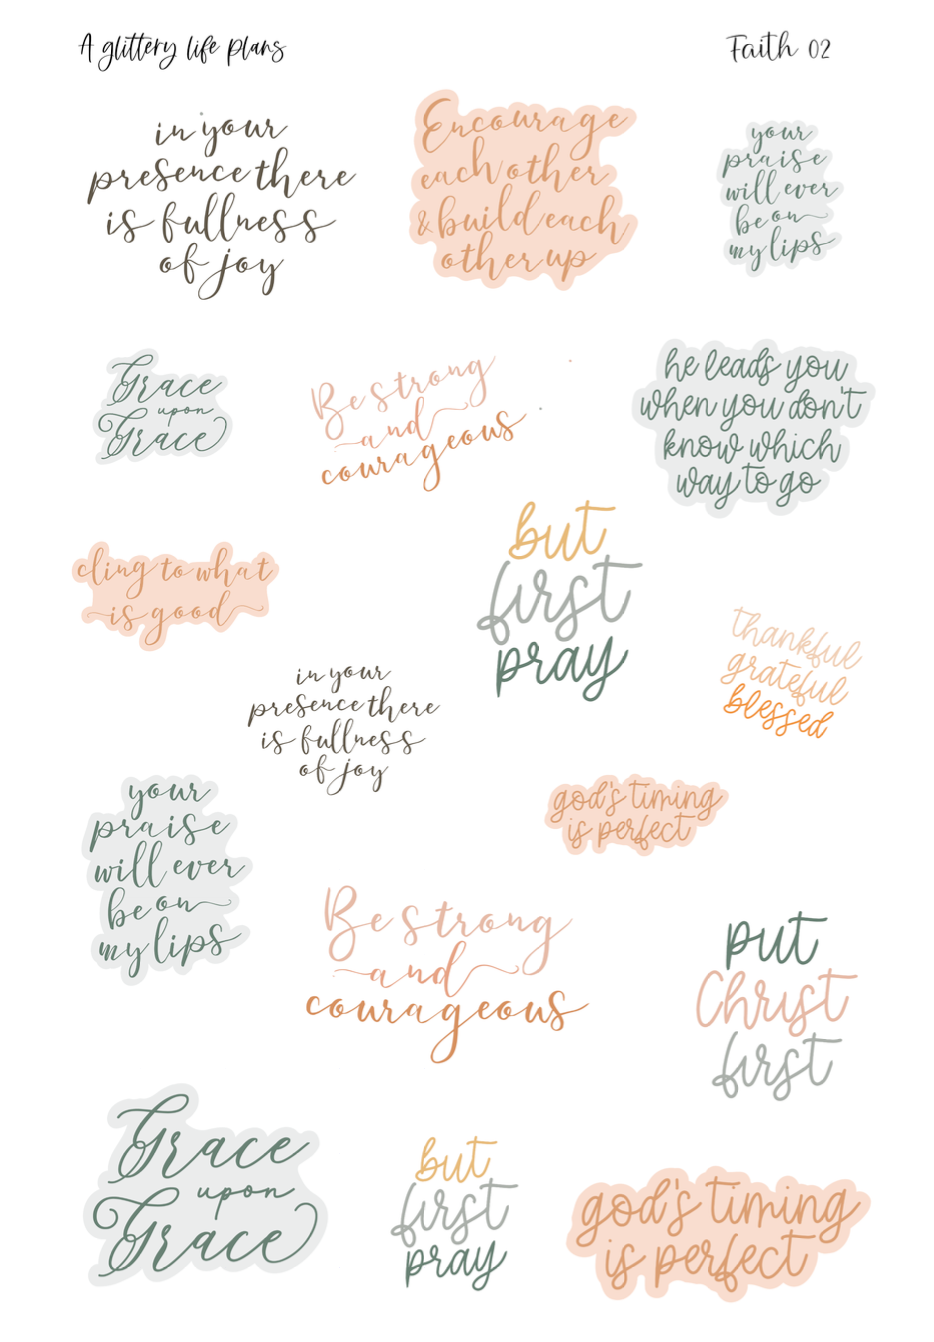 A glittery life plans
Faith 02
in your
presence there
is fullness
of joy
Encourage
each other
& build each
other up
your
praise
will ever
be on
my lips
Grace
upon
Grace
Be strong
and
courageous
he leads you
when you don't
know which
way to go
cling to what
is good
but
first
pray
thankful
grateful
blessed
in your
presence there
is fullness
of joy
your
praise
will ever
be on
my lips
god's timing
is perfect
Be strong
and
courageous
put
Christ
first
Grace
upon
Grace
but
first
pray
god's timing
is perfect